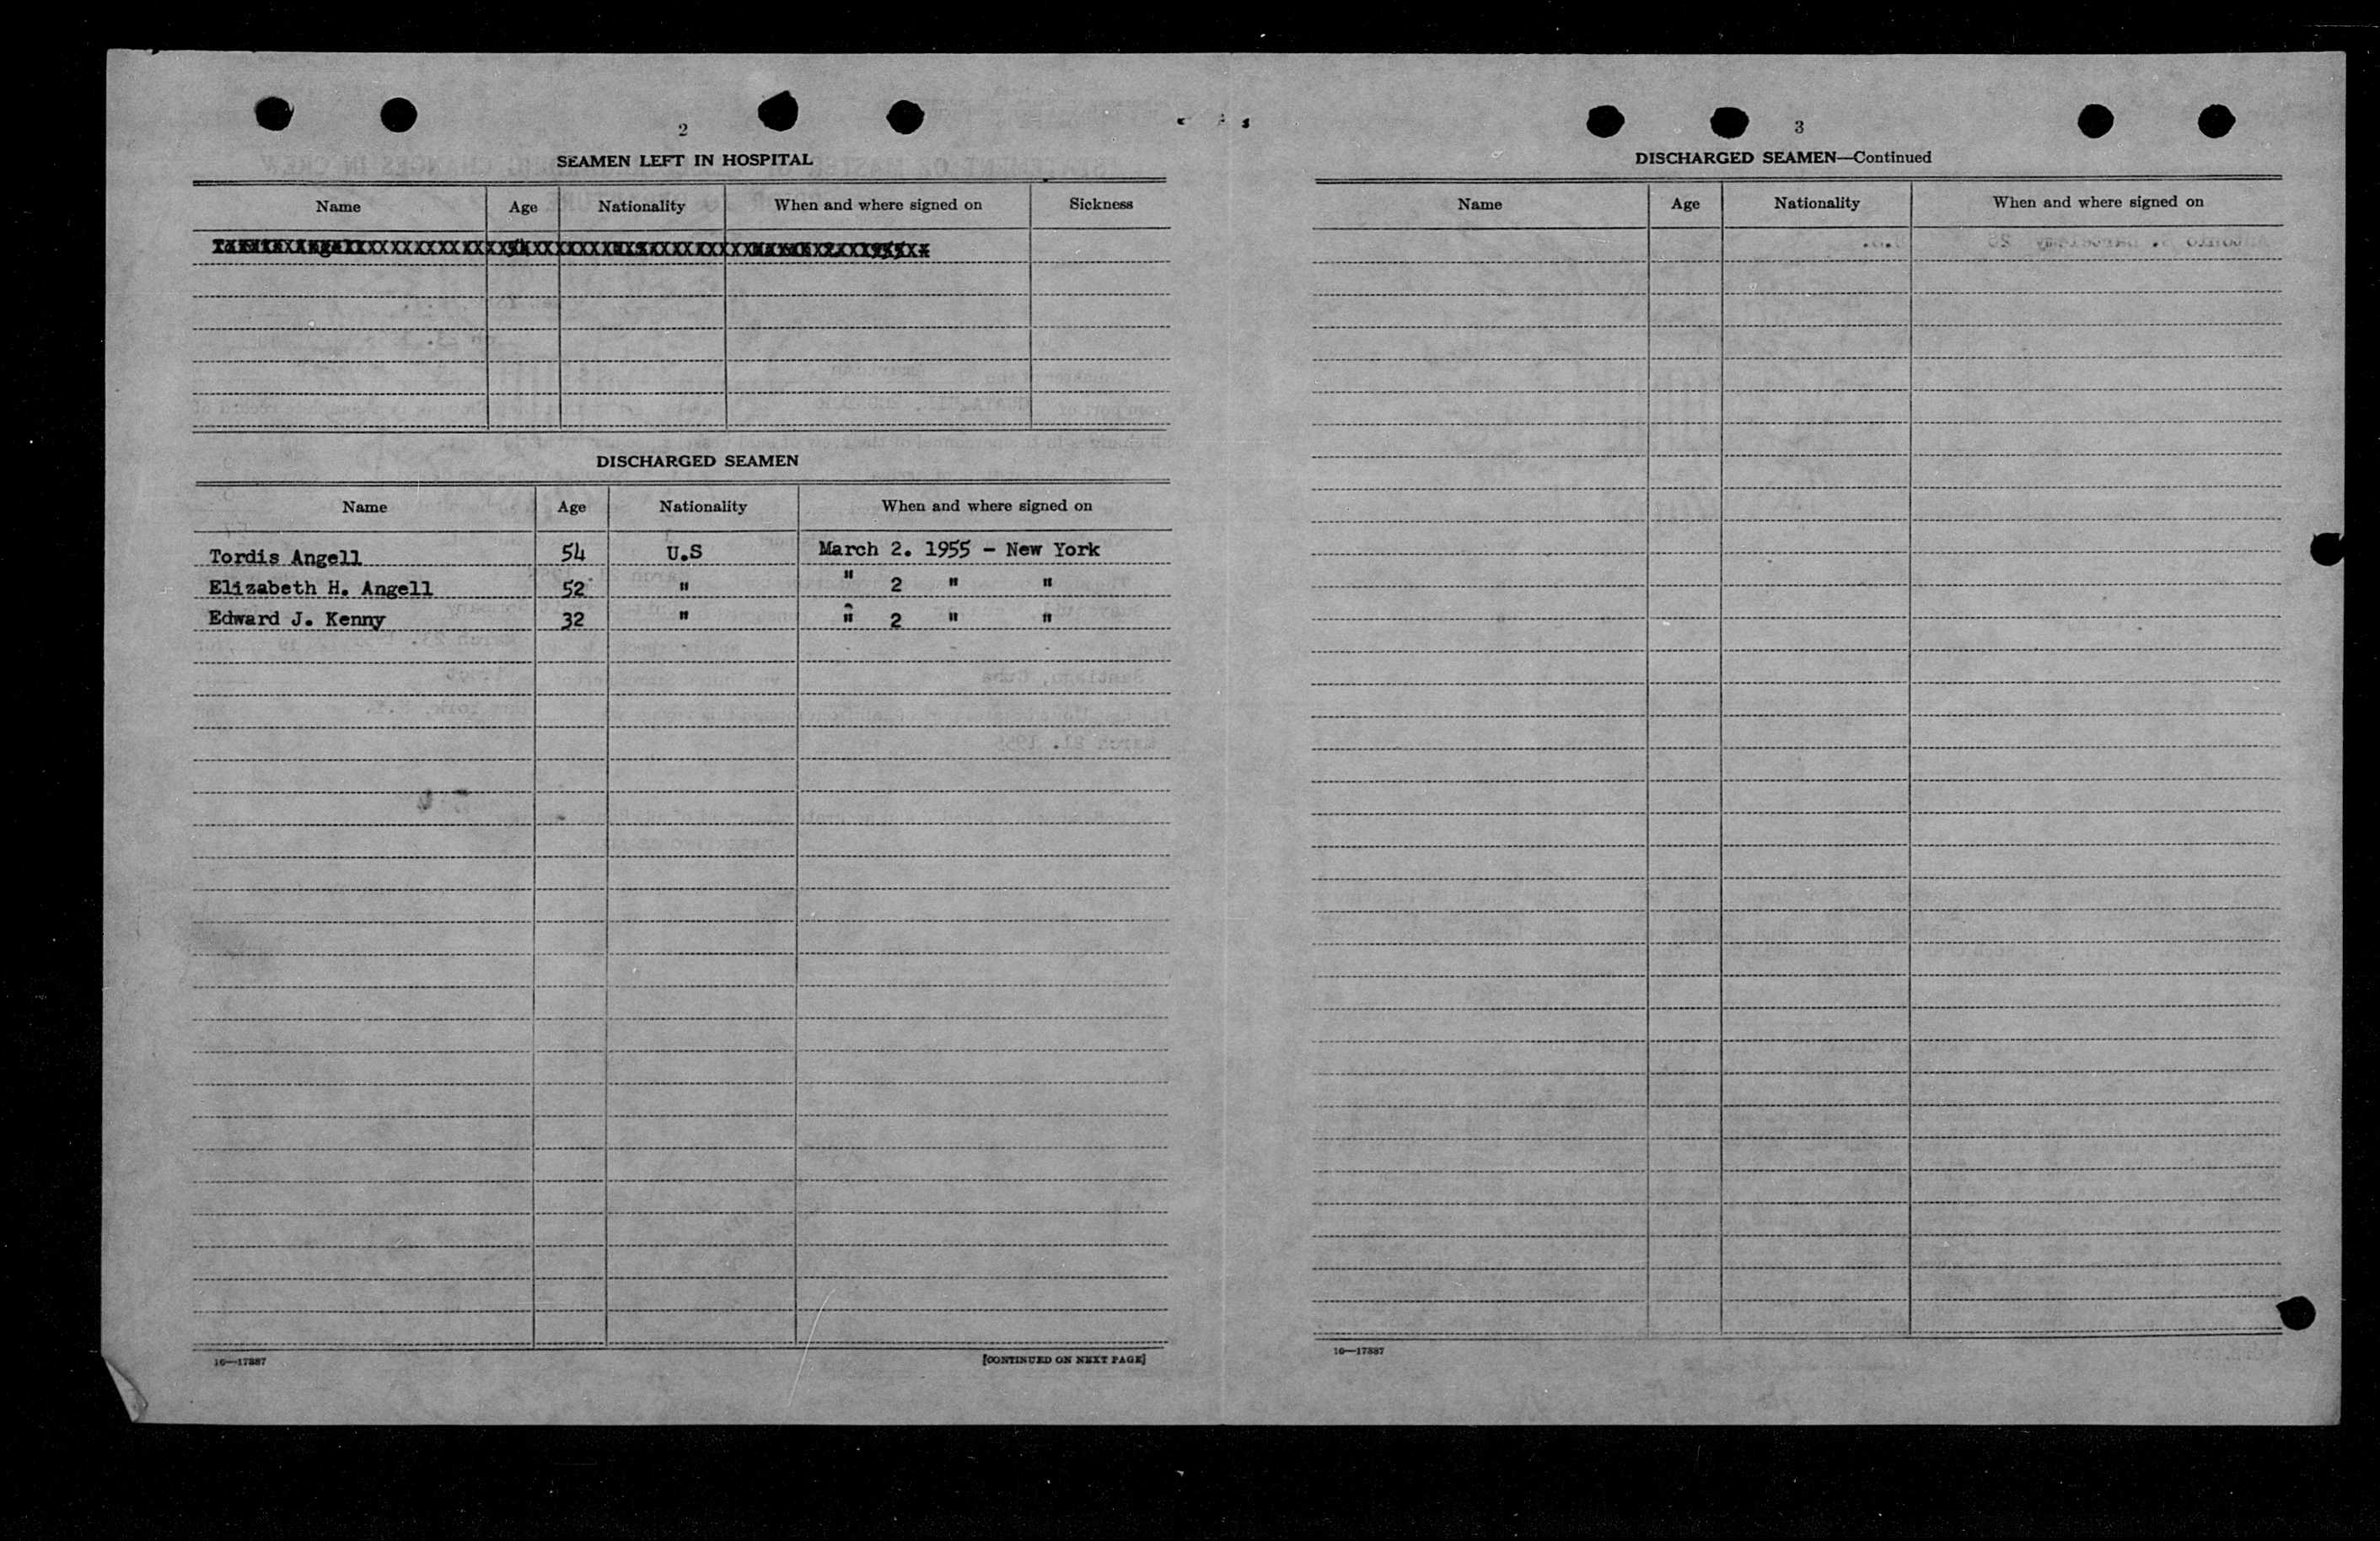 2
SEAMEN LEFT IN HOSPITAL
Name Age Nationality When and where signed on Sickness
Tordis Angell 54 U.S March 2. 1955
DISCHARGED SEAMEN
Name Age Nationality When and where signed on
Tordis Angell 54 U.S March 2. 1955 - New York
Elizabeth H. Angell 52 " " 2 " "
Edward J. Kenny 32 " " 2 " "
16—17887
[CONTINUED ON NEXT PAGE]
3
DISCHARGED SEAMEN—Continued
Name Age Nationality When and where signed on
16—17887